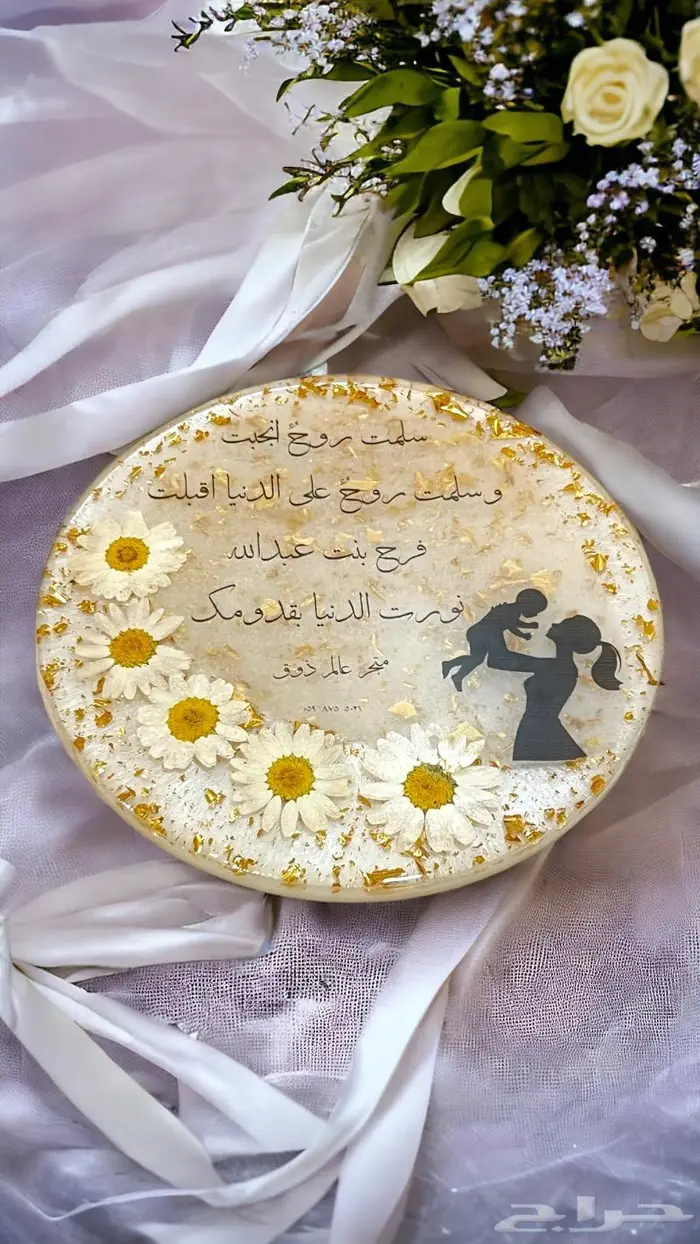 سلمت روحٌ انجبت
وسلمت روحٌ على الدنيا اقبلت
فرح بنت عبدالله
نورت الدنيا بقدومك
متجر عالم ذوق
٠٥٩ ٨٧٥ ٥٠٢١
حراج